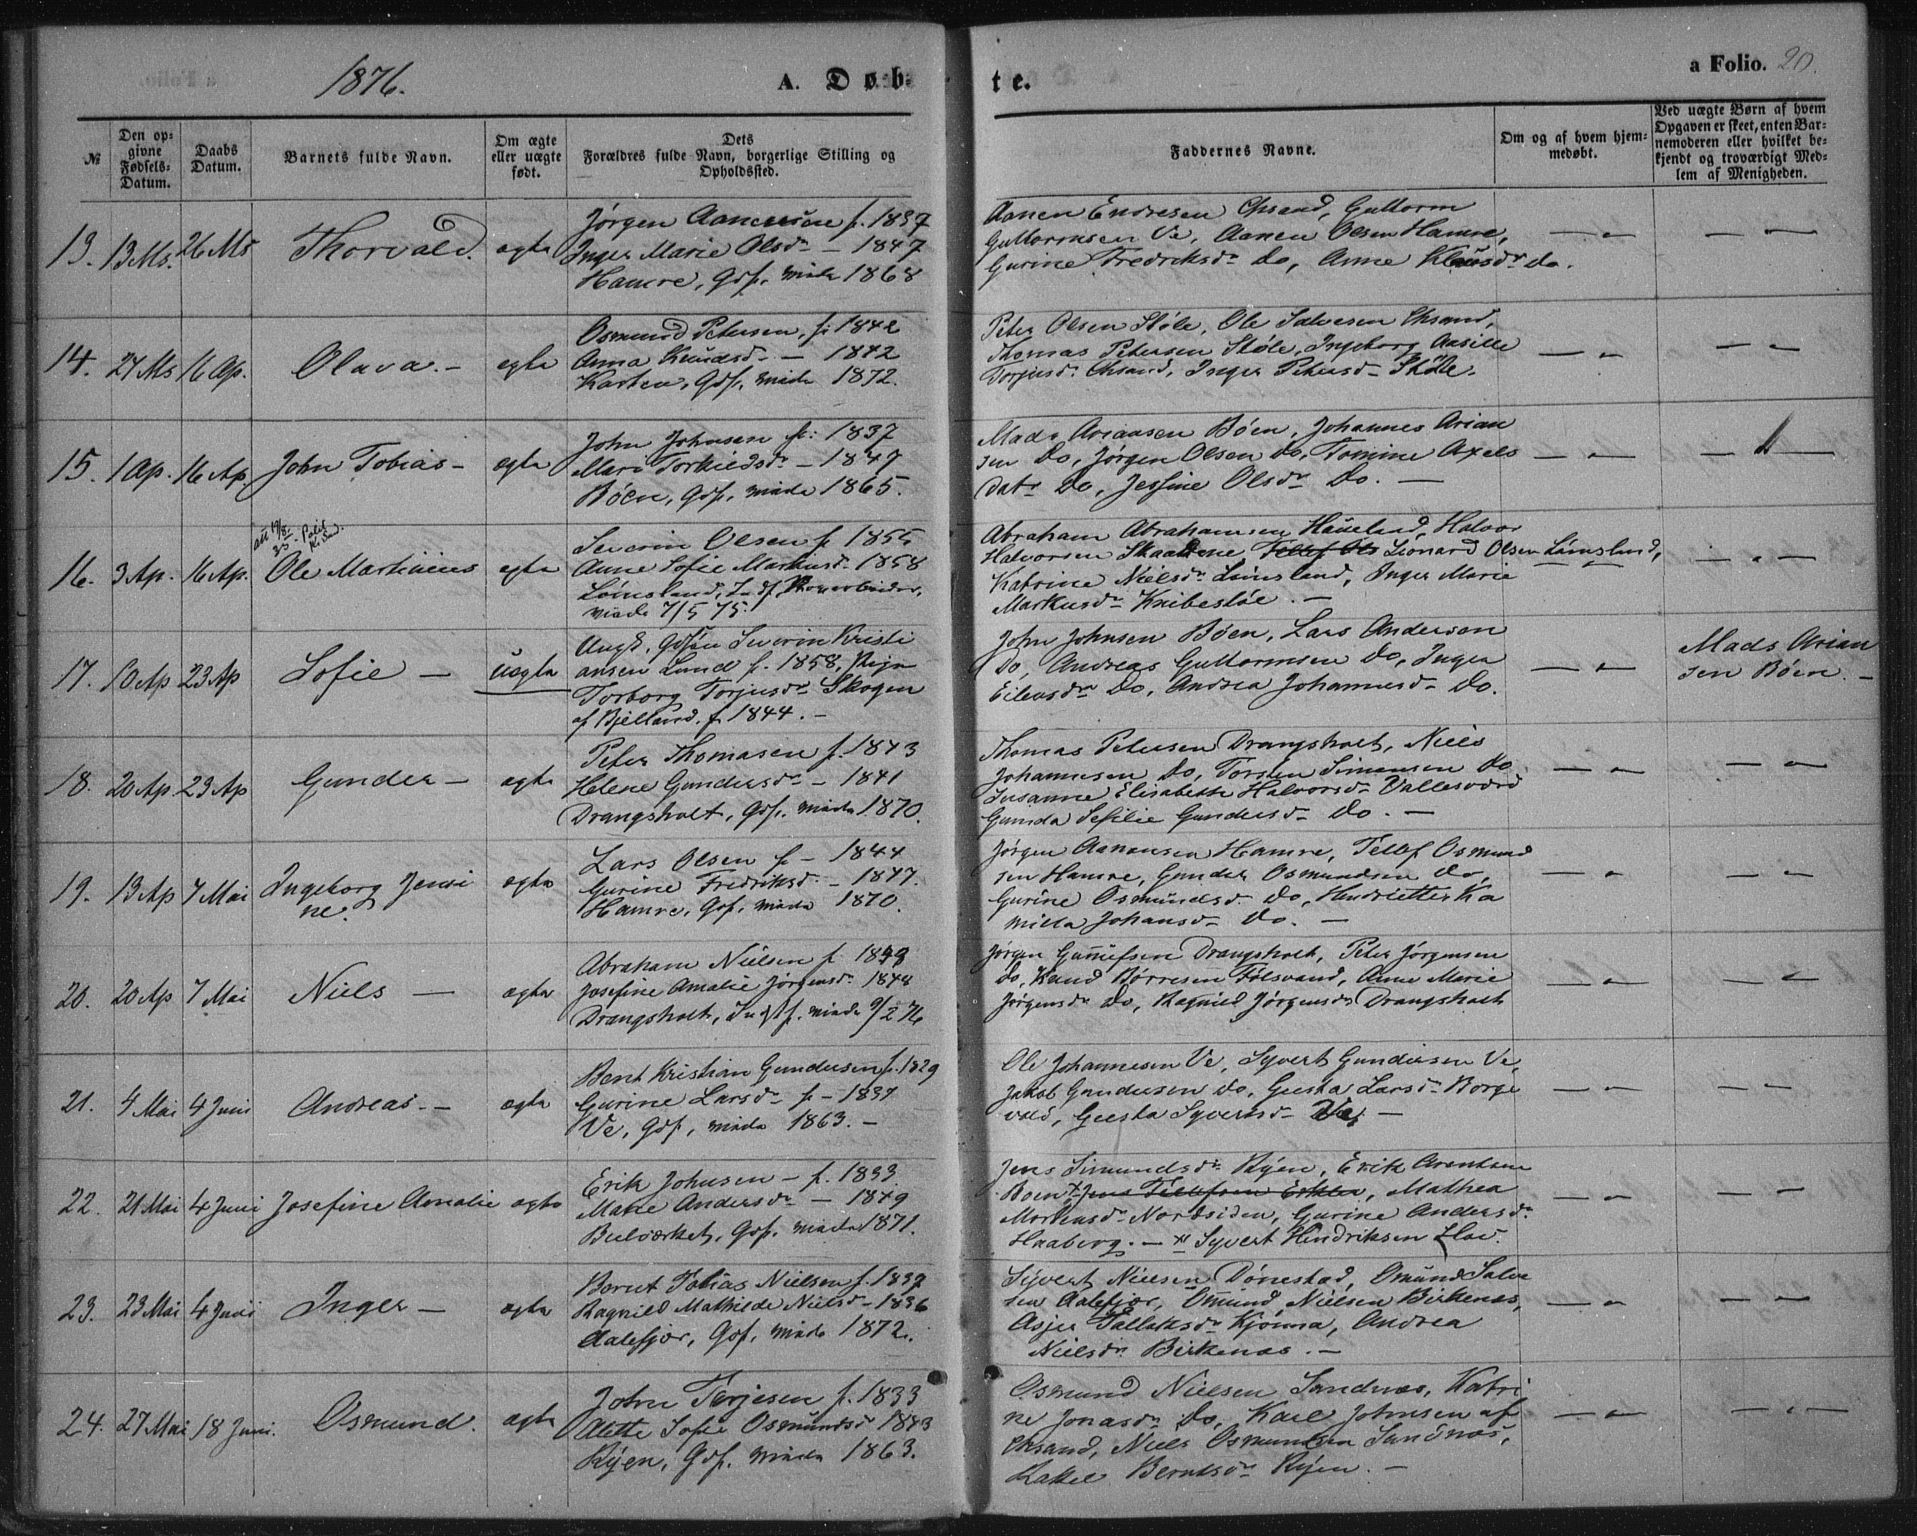 1876.
A. Døb-
te.
a Folio. 20.
№
Den op-
givne
Fødsels-
Datum.
Daabs
Datum.
Barnets fulde Navn.
Om ægte
eller uægte
født.
Dets
Forældres fulde Navn, borgerlige Stilling og
Opholdssted.
Faddernes Navne.
Om og af hvem hjem-
medøbt.
Ved uægte Børn af hvem
Opgaven er skeet, enten Bar-
nemoderen eller hvilket be-
kjendt og troværdigt Med-
lem af Menigheden.
13. 13 Ms. 26 Ms Thorvald. ægte
Jørgen Aanensen f. 1837
Inger Marie Olsdr — 1847
Hamre, Gdf. viede 1868
Aanen Endresen Chrsand, Guttorm
Guttormsen Ve, Aanen Olsen Hamre,
Gurine Fredriksdr Do, Anne Klausdr Do.
14. 24 Ms 16 Ap. Olava. — ægte
Osmund Petersen, f. 1842
Anna Knudsd. — 1842
Karten, Gdf, viede 1872.
Peter Olsen Støle, Ole Salvesen Chrsand,
Thomas Petersen Støle, Ingeborg Aasille
Torjusdr Chrsand, Inger Petersd — Støle.
15. 1 Ap. 16 Ap. John Tobias — ægte
John Johnsen f. 1837
Mari Torkildsdr — 1847
Bøen, Gdf, viede 1865.
Mads Ariansen Bøen, Johannes Arian
sen Do, Jørgen Olsen Do, Tomine Axels
datr Do, Jessine Olsdr Do. —
16. 3 Ap. 16 Ap. Ole Martinius ægte
Severin Olsen f. 1855
Anne Sofie Markusd. 1858
viede 7/5 75.
Abraham Abrahamsen Haueland, Halvor
Halvorsen Skaadene Tellef Ols Leonard Olsen Lømsland,
Katrine Nielsdr Lømsland, Inger Marie
Markusdr Knibesløe. —
17. 10 Ap 23 Ap Sofie — uægte
Ungk, Gdsøn Severin Kristi
ansen Lund f. 1858, Pige
Torborg Torjusdr Skogen
af Bjelland. f. 1844. —
John Johnsen Bøen, Lars Andersen
Do, Andreas Guttormsen Do, Inger
Eilevsdr Do, Andrea Johannesd — Do.
Mads Arian
sen Bøen. —
18. 20 Ap 23 Ap Gunder — ægte
Peter Thomasen f. 1843
Helene Gundersdr — 1841
Drangsholt, Gdf. viede 1870.
Thomas Petersen Drangsholt, Niels
Johannesen Do, Torsten Simonsen Do
Susanne Elisabeth Halvorsd. Vallesværd
Gunda Sefilie Gundersd — Do. —
19. 13 Ap 7 Mai Ingeborg Jensi
ne. ægte
Lars Olsen f — 1844
Gurine Fredriksd. — 1847.
Hamre, Gdf, viede 1870.
Jørgen Aanensen Hamre, Tellef Osmund
sen Hamre, Gunder Osmundsen Do,
Gurine Osmundsd. Do, Henriette Ka
milla Johansd — Do. —
20. 20 Ap 7 Mai Niels — ægte
Abraham Nielsen f. 1848
Josefine Amalie Jørgensd. 1848
Drangsholt, Indstf. viede 9/2 76
Jørgen Gunnufsen Drangsholt, Peter Jørgensen
Do, Knud Børresen Følsvand, Anne Marie
Jørgensdr Do, Ragnild Jørgensdr Drangsholt
21. 4 Mai 4 Juni Andreas. — ægte
Bent Kristian Gundersen f. 1829
Gurine Larsdr f — 1837
Ve, Gdf, viede 1863. —
Ole Johannesen Ve, Syvert Gundersen Ve,
Jakob Gundersen Do, Gusta Larsdr Borge
vold, Gusta Syvertsd — Ve, —
22. 21 Mai 4 Juni Josefine Amalie ægte
Erik Johnsen — f. 1833.
Marie Andersdr — 1849
Bulværket, Gdf. viede 1871.
Jens Simundsdr Ryen, Erik Arentsen
Boen × Jens Tellefsen Erkleo, Mathea
Mortensdr Nordsiden, Gurine Andersdr
Haaberg. — × Syvert Hindriksen Flov.
23. 23 Mai 4 Juni Inger — ægte
Bernt Tobias Nielsen f. 1837
Ragnild Mathilde Nielsd — 1836
Aalefjær, Gdf. viede 1872.
Syvert Nielsen Dønestad, Omund Salve
sen Aalefjær, Omund Nielsen Birkenæs,
Asjer Tallaksdr Kjonna, Andrea
Nielsdr Birkenæs. —
24. 27 Mai 18 Juni. Osmund. ægte
John Terjesen f. 1833
Alette Sofie Osmundsd. 1843
Ryen, Gdf. viede 1863.
Osmund Nielsen Sandnæs, Katri
ne Jonasdr Do, Karl Johnsen af
Chrsand, Niels Osmundsen Sandnæs,
Rakel Berntsdr Ryen. —